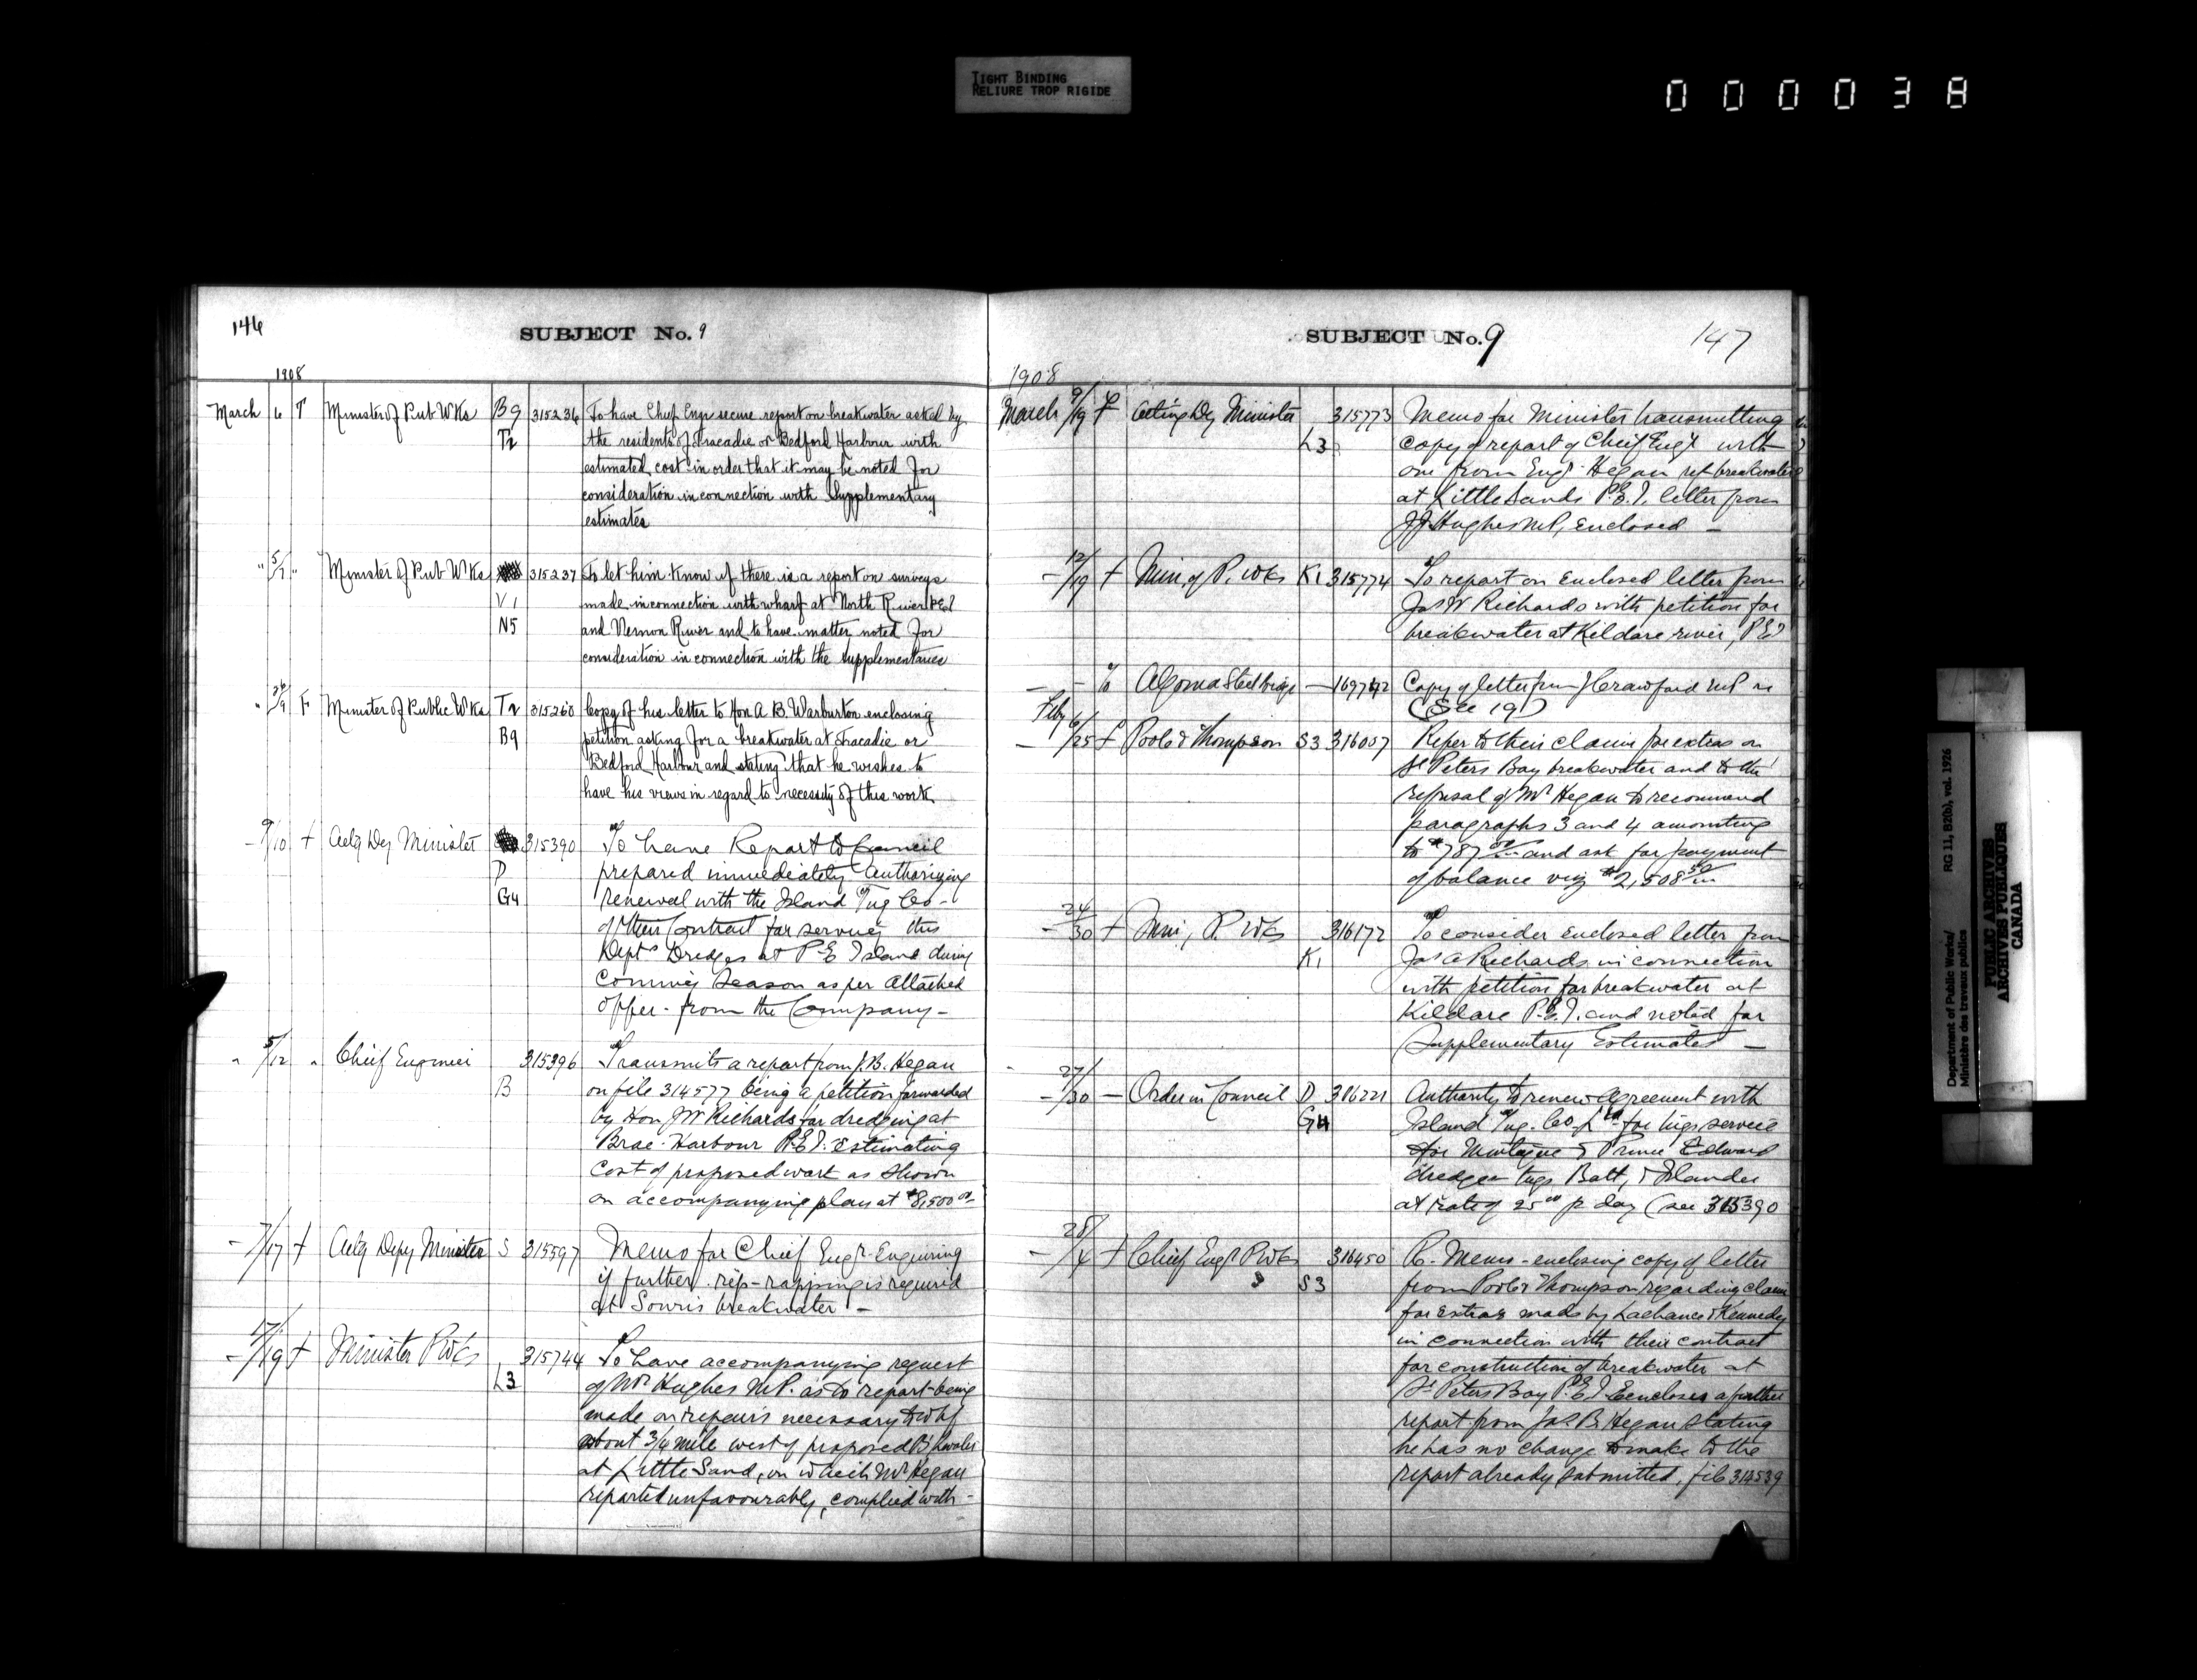 TIGHT BINDING
RELIURE TROP RIGIDE
000038
146
SUBJECT No. 9
1908
March 6 T Minister of Pub Wks B9 315236 To have Chief Engr secure report on breakwater asked by
T2 the residents of Tracadie or Bedford Harbour with
estimated cost in order that it may be noted for
consideration in connection with Supplementary
estimates
" 5/7 " Minister of Pub Wks 315237 To let him know if there is a report on surveys
V1 made in connection with wharf at North River PEI
N5 and Vernon River and to have matter noted for
consideration in connection with the supplementaries
" 26/9 F Minister of Public Wks T2 315260 Copy of his letter to Hon A. B. Warburton enclosing
B9 petition asking for a breakwater at Tracadie or
Bedford Harbour and stating that he wishes to
have his views in regard to necessity of this work.
- 9/10 + Actg Dy Minister 315390 To have Report to Council
D prepared immediately authorizing
G4 renewal with the Island Tug Co-
of their Contract for serving this
Depts Dredges at P.E Island during
Coming Season as per attached
offer - from the Company -
" 5/12 " Chief Engineer 315396 Transmits a report from J.B. Hegan
B on file 314577 being a petition forwarded
by Hon JW Richards for dredging at
Brae Harbour P.E.I. Estimating
Cost of proposed work as shown
on accompanying plan at $8,500 00
- 7/17 + Actg Depy Minister S 315597 Memo for Chief Engr - Enquiring
if further rip-rapping is required
at Souris breakwater -
- 17/19 + Minister P Wks 315744 To have accompanying request
L3 of Mr Hughes M.P. as to report being
made on repairs necessary to whf
about 3/4 mile west of proposed B'kwater
at Little Sand, on which Mr Hegan
reported unfavourably, complied with -
SUBJECT No. 9
147
1908
March 9/19 + Acting Dy Minister 315773 Memo for Minister transmitting
L3 copy of report of Chief Engr with
one from Engr Hegan ref breakwater
at Little Sands P.E.I. letter from
J J Hughes M.P, enclosed -
- 12/19 + Min. of P. Wks K1 315774 To report on enclosed letter from
Jas W Richards with petition for
breakwater at Kildare river, PEI
Algoma Steel Bridge - 169742 Copy of letter from J Crawford M.P. re
(See 19)
Feby
- 6/25 + Poole & Thompson S3 316057 Refer to their claim for extras on
St Peters Bay breakwater and to the
refusal of Mr Hegan to recommend
paragraphs 3 and 4 amounting
to $787 and ask for payment
of balance viz $2,508 50
- 24/30 + Min, P. Wks 316172 To consider enclosed letter from
K1 Jas A Richards in connection
with petition for breakwater at
Kildare P.E.I. and noted for
Supplementary Estimates -
- 27/30 - Order in Council D 316221 Authority to renew agreement with
G4 Island Tug. Co. Ld for tugs service
for Montague & Prince Edward
dredges tugs Batt, & Islander
at rate of 25 00 p day (see 315390
- 28/4 + Chief Engr P Wks 316450 R. Memo - enclosing copy of letter
S3 from Poole & Thompson regarding claim
for Extras made by Lachance & Kennedy
in connection with their contract
for construction of breakwater at
St Peters Bay P.E.I Encloses a further
report from Jas. B. Hegan stating
he has no change to make to the
report already submitted, file 314539
Department of Public Works/ RG 11, B2(b), vol. 1926
Ministère des travaux publics
PUBLIC ARCHIVES
ARCHIVES PUBLIQUES
CANADA